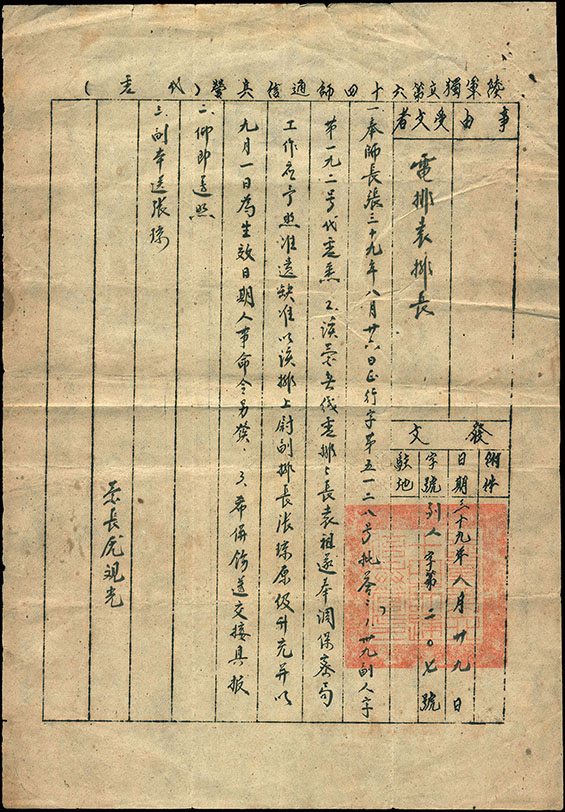 陸軍獨立第六十四師通信兵營(代電)
事由
受文者
電排袁排長
發文
附件
日期
三十九年八月廿九日
字號
副人字第二〇七號
駐地
一奉師長張三十九年八月廿六日正行字第五一二八号批答:1.卅九副人字
第一九二号代電悉 2.該營無線電排排長袁祖遂奉調保密局
工作應予照准遺缺准以該排上尉副排長張琮原級升充并以
九月一日為生效日期人事命令另發 3.希併飭遵交接具報
二、仰即遵照
三、副本送張琮
營長 祝光